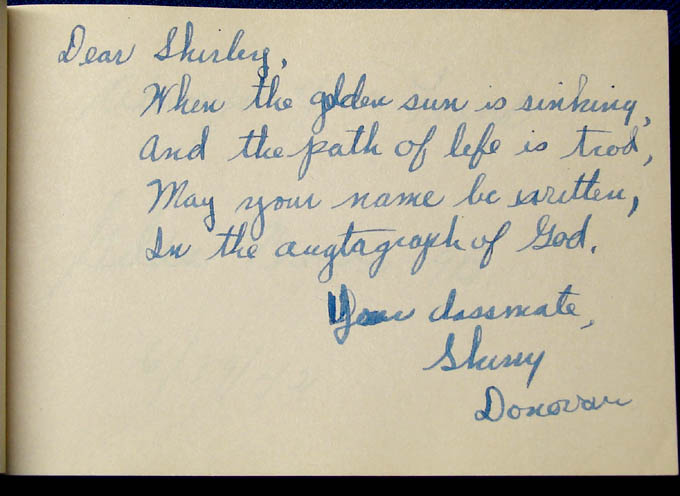 Dear Shirley,
When the golden sun is sinking,
And the path of life is trod,
May your name be written,
In the augtagraph of God.
Your classmate,
Donovan